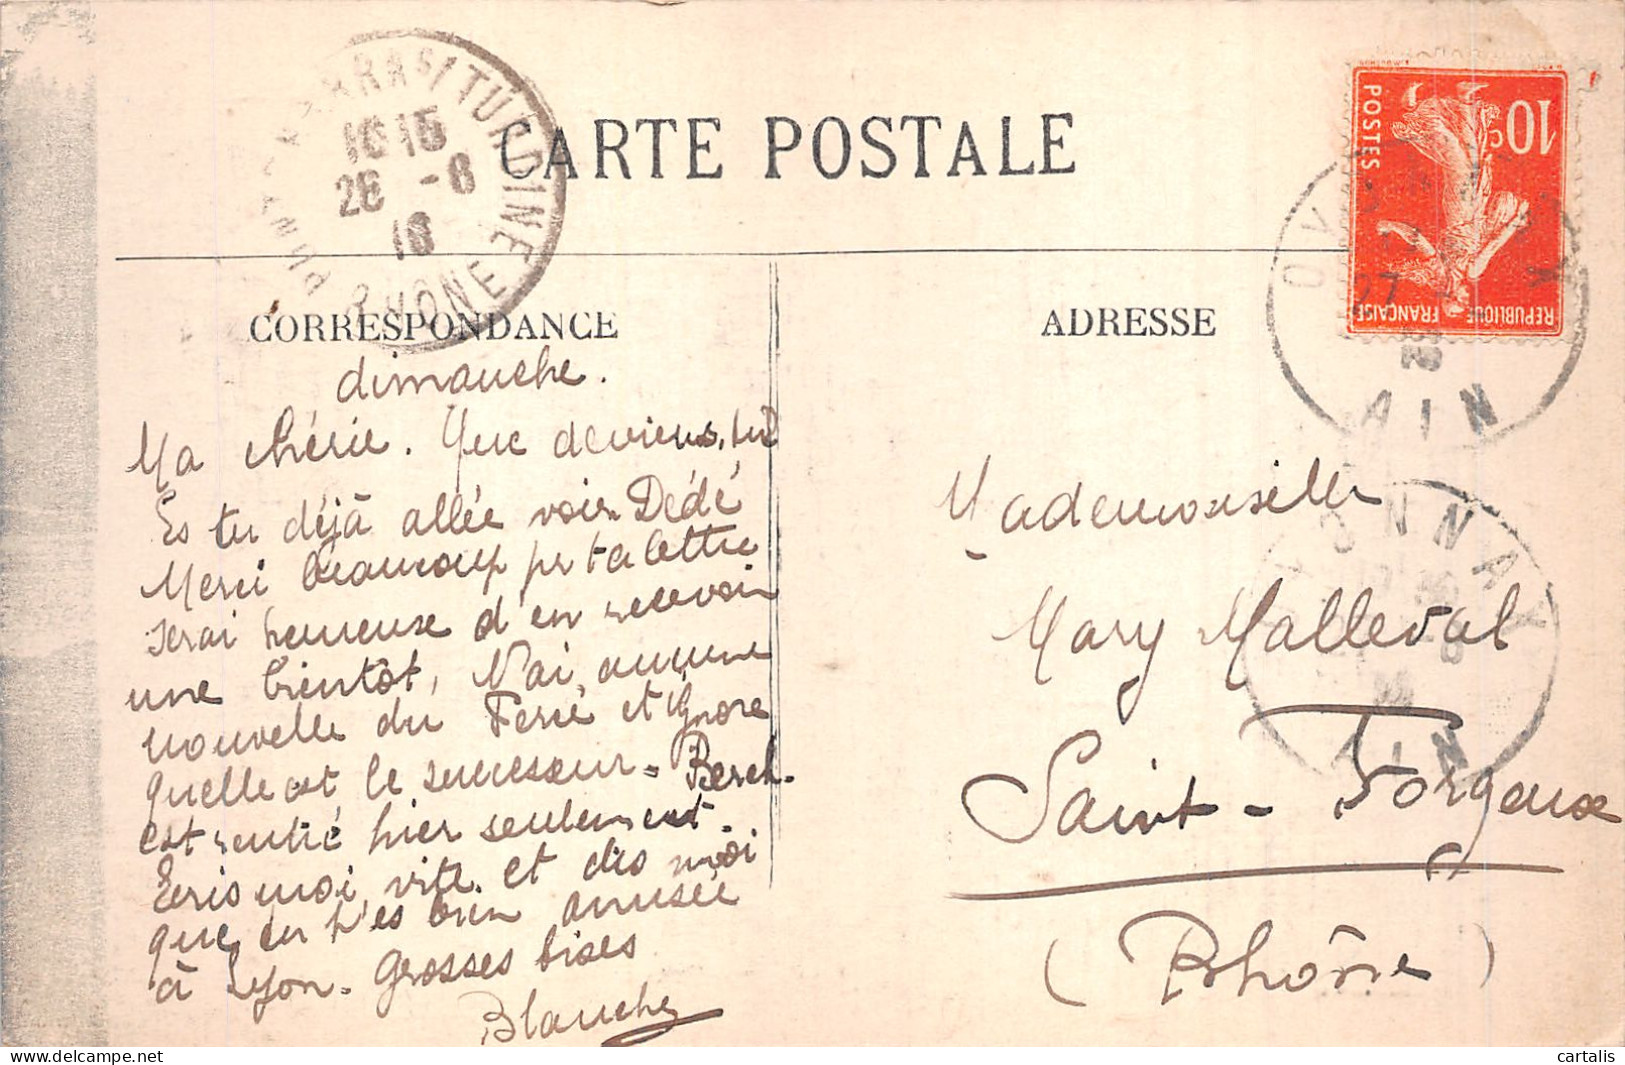 CARTE POSTALE
CORRESPONDANCE
dimanche.
Ma chérie. Que deviens, tu?
Es tu déjà allée voir Dédé
Merci beaucoup pr ta lettre
serai heureuse d'en recevoir
une bientôt, N'ai aucune
nouvelle du Ferié et ignore
quelle est le successeur - Berch.
est rentré hier seulement.
Ecris moi vite et dis moi
que tu t'es bien amusée
à Lyon. Grosses bises
Blanche
ADRESSE
Mademoiselle
Mary Malleval
Saint-Forgeux
(Rhône)
10c
POSTES
REPUBLIQUE FRANÇAISE
TURDINE
RHONE
16 15
26 -6
16
OYONNAX
27
AIN
OYONNAX
AIN
cartalis